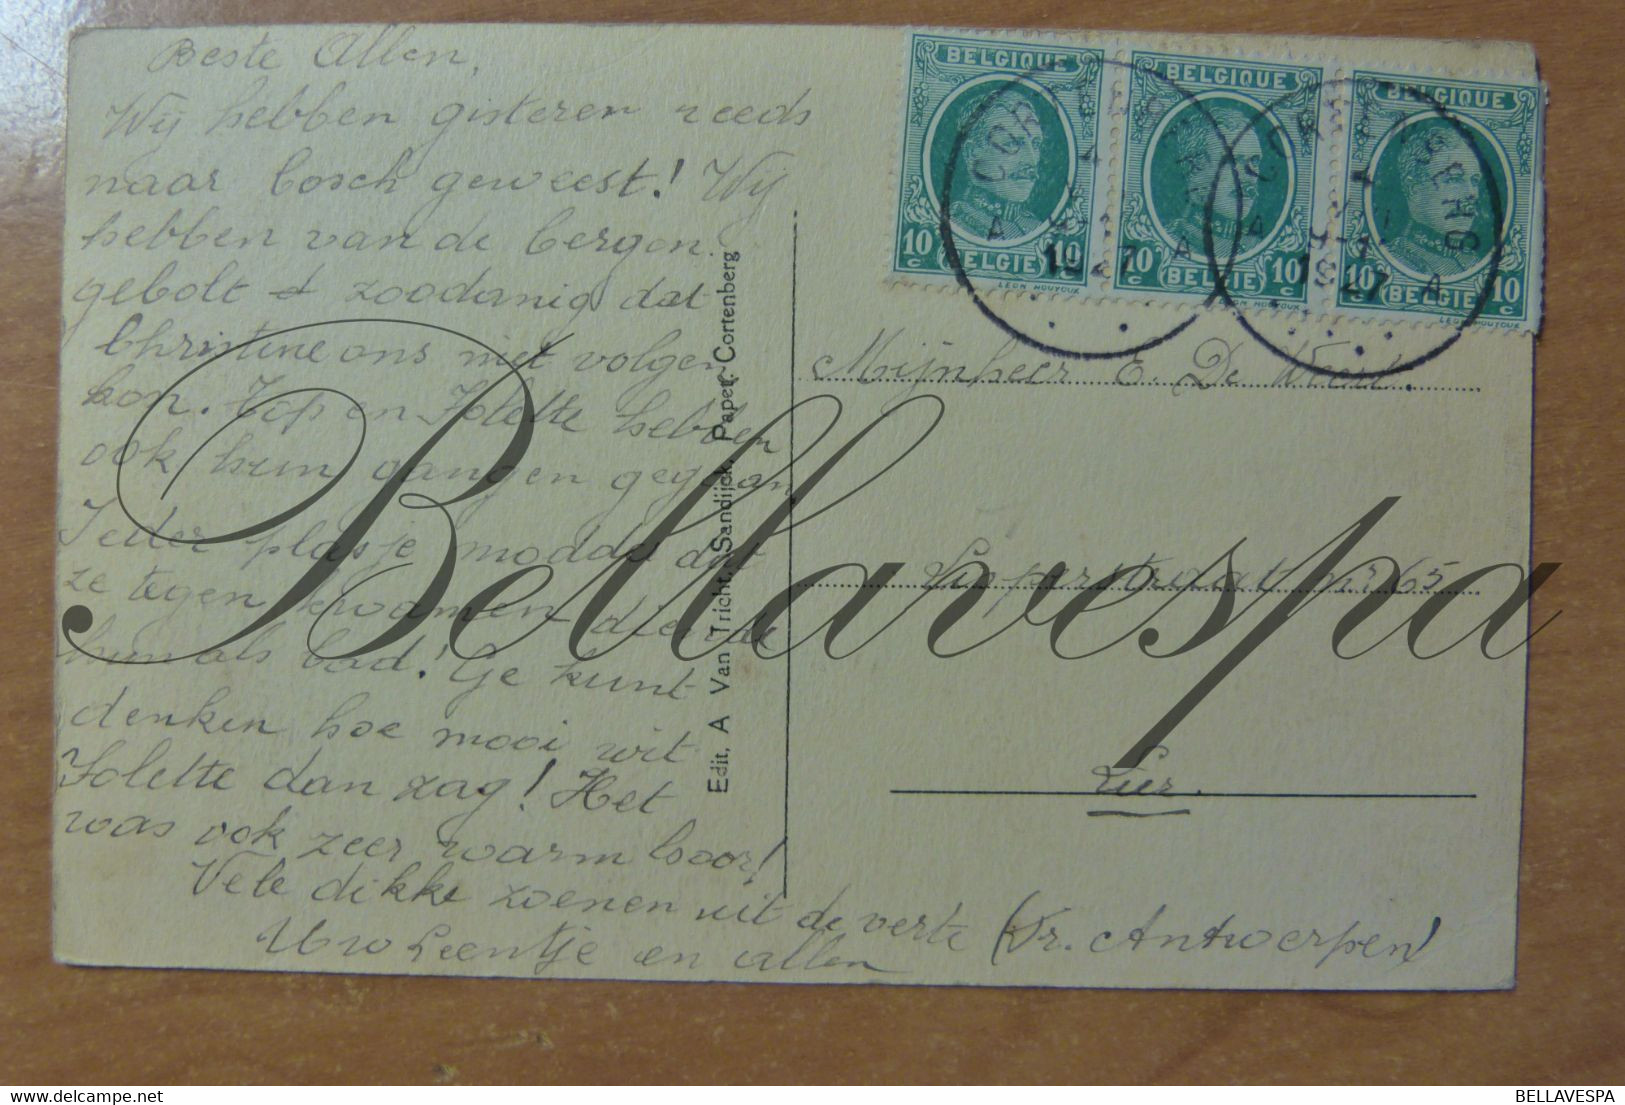 Beste Allen,
Wij hebben gisteren reeds
naar bosch geweest! Wij
hebben van de bergen
gebolt & zoodanig dat
Christine ons niet volgen
kon. Top en Jolette hebben
ook hun gangen gegaan
Ieder plasje modde dat
ze tegen kwamen diende
hun als bad! Ge kunt
denken hoe mooi wit
Jolette dan zag! Het
was ook zeer warm hoor!
Vele dikke zoenen uit de verte (Pr. Antwerpen)
Uw Leentje en allen
Edit, A Van Tricht, Sandijck, Paper, Cortenberg
BELGIQUE
10 c BELGIË 10 c
LEON HOUYOUX
BELGIQUE
10 c BELGIË 10 c
LEON HOUYOUX
BELGIQUE
10 c BELGIË 10 c
LEON HOUYOUX
CORTENBERG
A 1927 A
CORTENBERG
A 1927 A
Mijnheer E. De
nr 65
Lier.
Bellavespa
BELLAVESPA